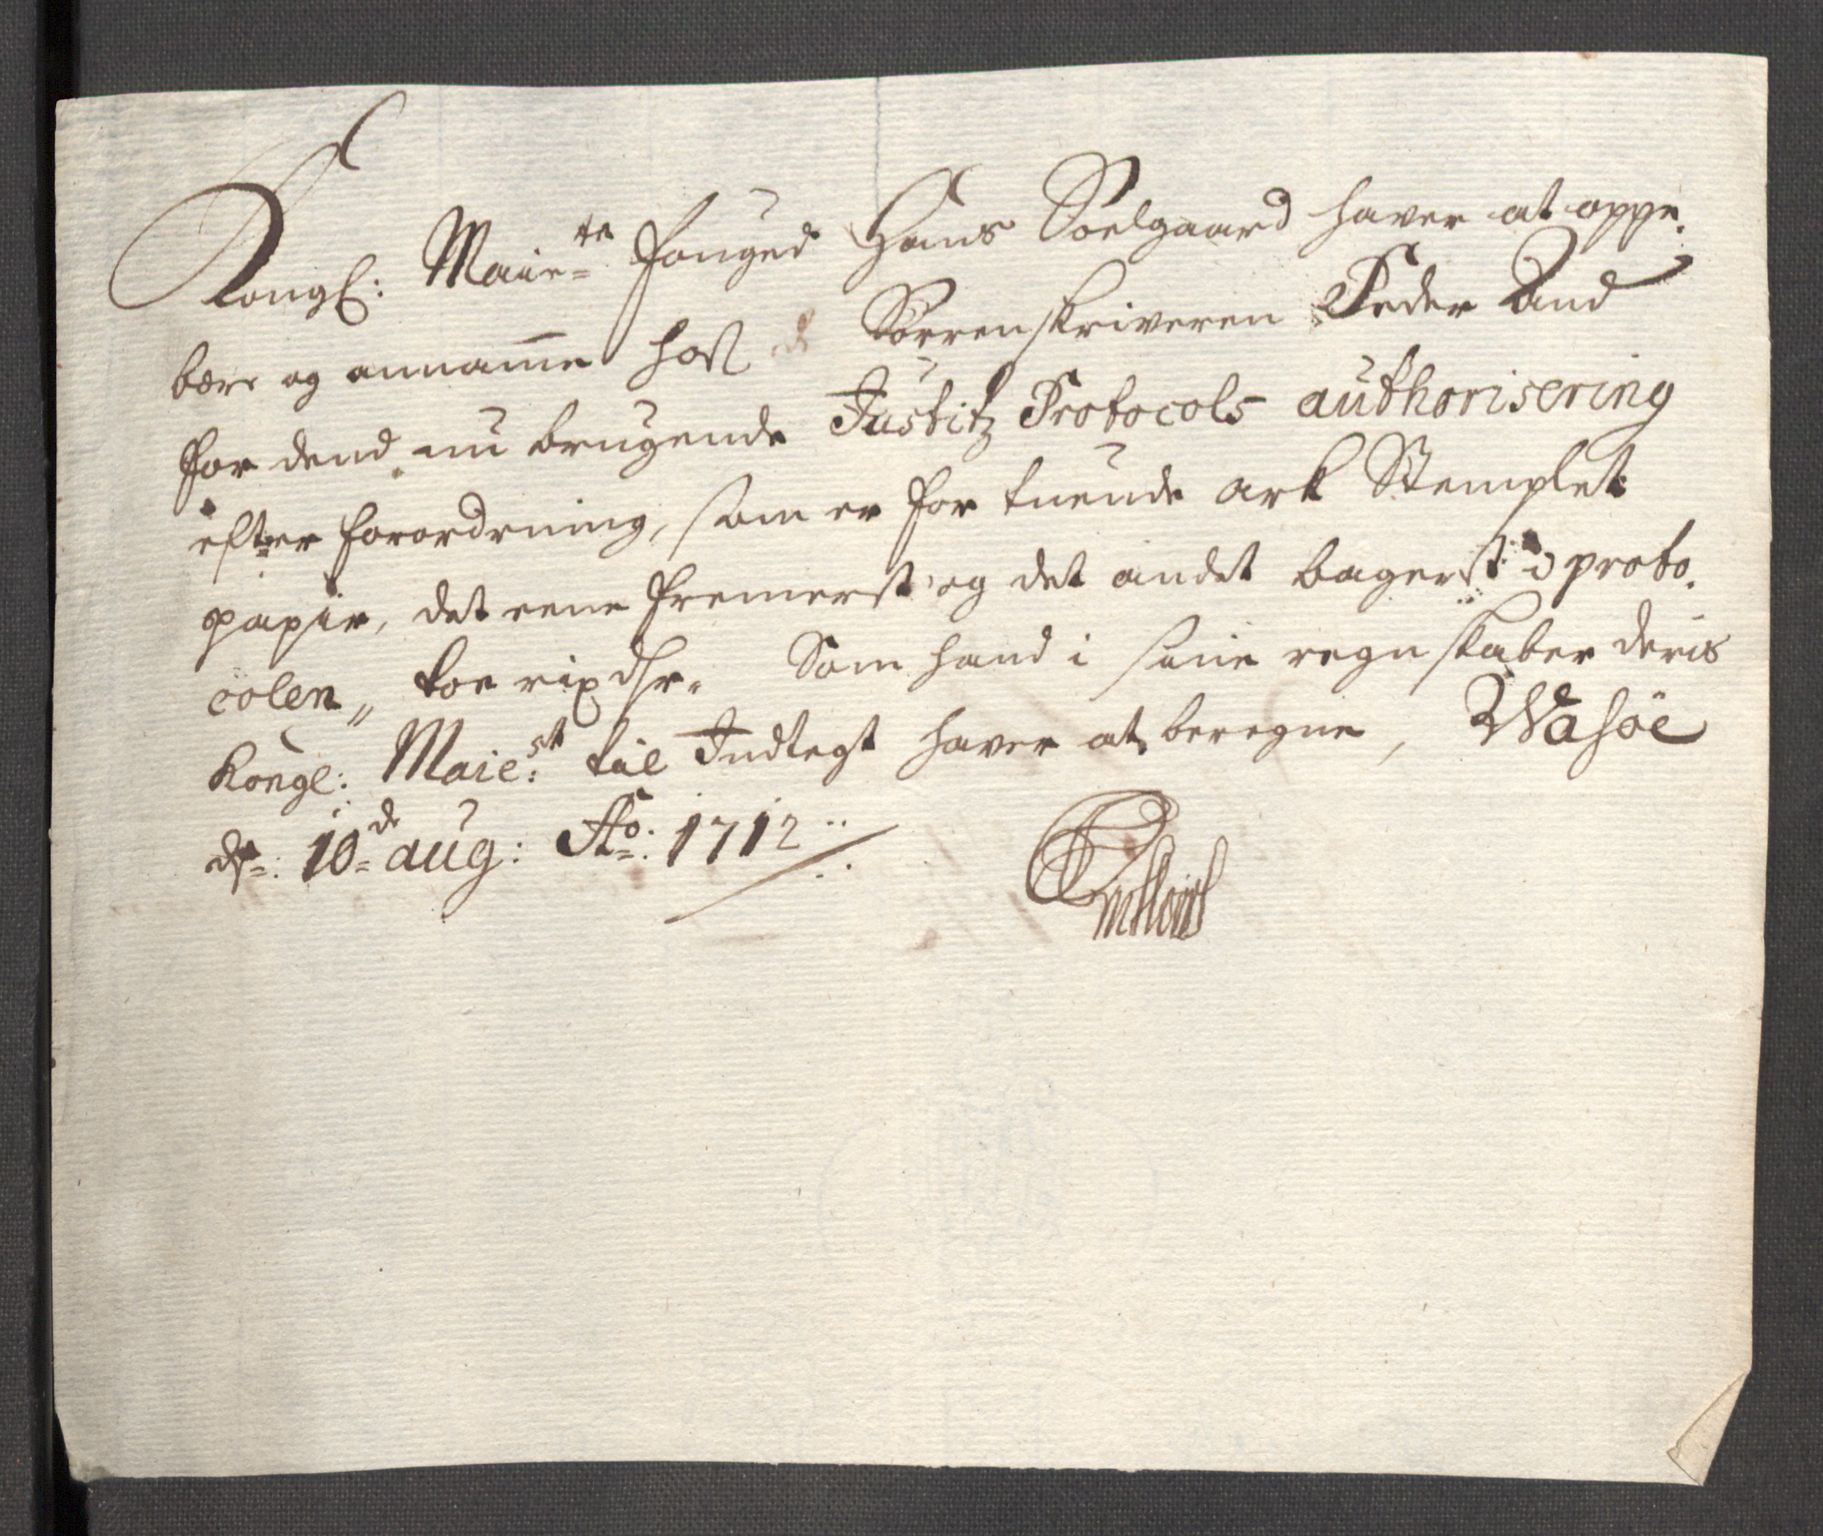 Kongl: Maie-te fouged Hans Soelgaard haver at oppe,
bere og annamme hos Sorrenskriveren Peder Lund
for dend nu brugende Justitz Protocols authorisering
efter forordning, som er for tuende ark Stemplet
papir, det eene fremerst og det andet bagerst i proto,
colen,, toe rixdlr. Som hand i sine regnskaber deris
Kongl: Maie:st til Indtegt haver at beregne, Wasöe
ds: 10de aug: Ao: 1712